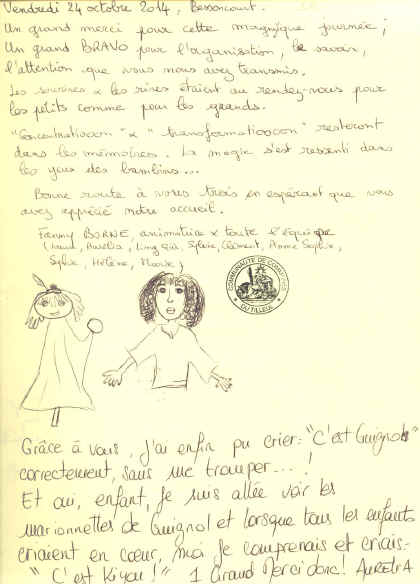 Vendredi 24 octobre 2014, Bessoncourt.
Un grand merci pour cette magnifique journée,
Un grand BRAVO pour l'organisation, le savoir,
l'attention que vous nous avez transmis.
Les sourires & les rires étaient au rendez-vous pour
les petits comme pour les grands.
"Concentratiooon" & "transformatiooon" resteront
dans les mémoires. La magie s'est ressenti dans
les yeux des bambins...
Bonne route à vous trois en espérant que vous
avez apprécié notre accueil.
Fanny BORNE, animatrice & toute l'équipe
Aurélia, Sylvie, Clément, Anne Sophie,
Sylvie, Hélène,
COMMUNAUTE DE COMMUNES
DU TILLEUL
Grâce à vous, j'ai enfin pu crier: "C'est Guignol"
correctement, sans me tromper...!
Et oui, enfant, je suis allée voir les
marionnettes de Guignol et lorsque tous les enfants
criaient en cœur, moi je comprenais et criais-
"C'est Kiyou!" 1 Grand Merci donc! Aurélia